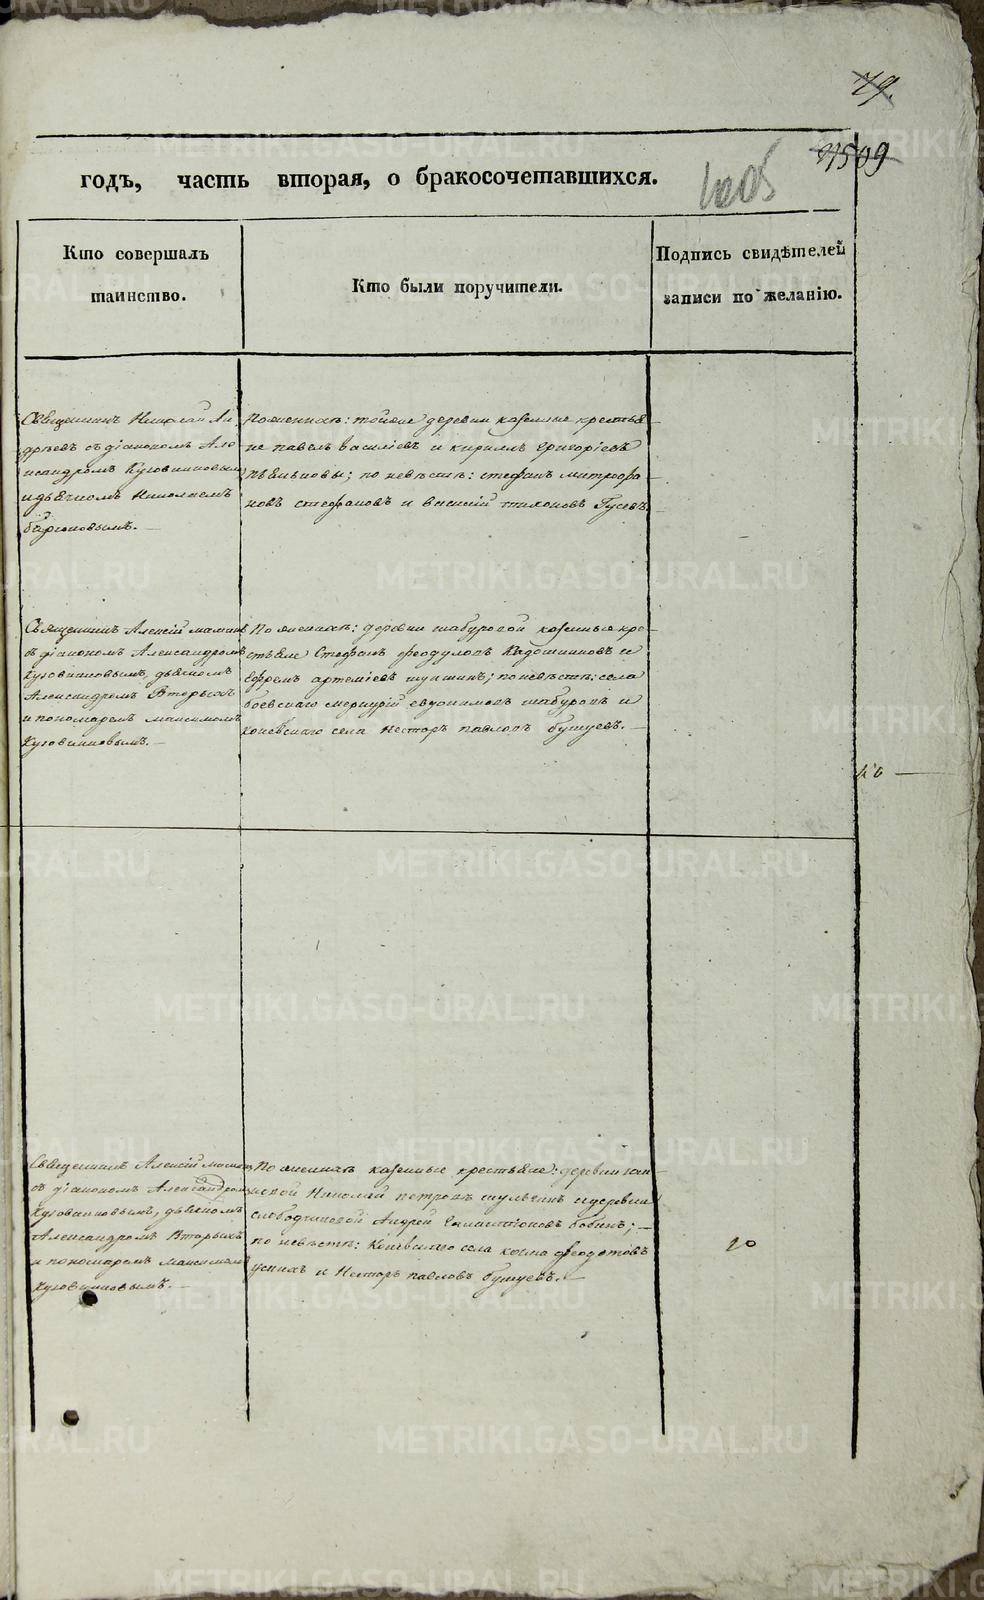 79.
1509
годъ, часть вторая, о бракосочетавшихся.
Кто совершалъ
таинство.
Кто были поручители.
Подпись свидѣтелей
записи по желанію.
Священникъ Николай Ан-
дрѣевъ съ діакономъ Але
ксандромъ Кузовниковымъ
и дьячкомъ Николаемъ
По женихѣ: тойже деревни казенные крестья-
не павелъ василіевъ и кирилъ григоріевъ
по невѣстѣ: стефанъ митрофа
новъ стефановъ и василій тихоновъ Гусевъ.
Священникъ Алексій маминъ
съ діакономъ Александромъ
Кузовниковымъ, дьячкомъ
Александромъ Вторыхъ
и пономаремъ максимомъ
Кузовниковымъ.
По женихѣ: деревни шабуровой казенные кре-
стьяне Стефанъ феодуловъ Кадошниковъ и
Ефремъ артеміевъ шупшинъ; по невѣстѣ: села
боевскаго меркурій евдокимовъ шабуровъ и
коневскаго села Несторъ павловъ бушуевъ.
Священникъ Алексій маминъ
съ діакономъ Александромъ
Кузовниковымъ, дьячкомъ
Александромъ Вторыхъ
и пономаремъ максимомъ
Кузовниковымъ.
По женихѣ казенные крестьяне: деревни
Николай петровъ шульгинъ и деревни
слободчиковой Андрей бабинъ;
по невѣстѣ: Коневскаго села козма феодотовъ
и Несторъ павловъ бушуевъ.
20
METRIKI.GASO-URAL.RU